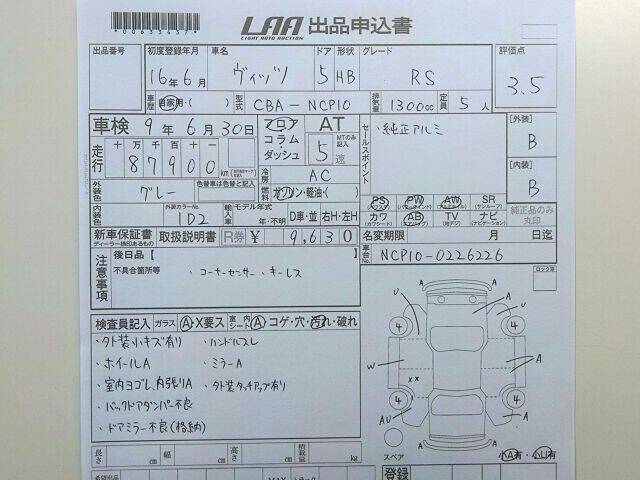 LAA 出品申込書
LIGHT AUTO AUCTION
出品番号 初度登録年月 車名 ドア 形状 グレード 評価点
16年6月 ヴィッツ 5 HB RS 3.5
車歴 自家用・( ) 型式 CBA-NCP10 排気量 1300cc 定員 5人
車検 9年6月30日 フロア コラム ダッシュ AT セールスポイント ・純正アルミ [外装] B
走行 十万 千百十 87900km MTのみ記入 5速
冷房 AC [内装] B
外装色 グレー 色替車は色替と記入 燃料 ガソリン・軽油・( )
PS PW AW SR
(パワステ) (サンルーフ) 純正品のみ丸印
内装色 外装カラーNo. 1D2 輸入車 モデル年式 年・不明 D車・並 右H・左H カワ AB TV ナビ
(ナビゲーション)
新車保証書 取扱説明書 R券 ¥ 9,630 名変期限 月 日迄
ディーラー捺印あるもの
車台No. NCP10-0226226
注意事項 後日品【 】
不具合箇所等 ・コーナーセンサー ・キーレス
ロック車
検査員記入 ガラス A・X要ス 室内シート A・コゲ・穴・汚れ・破れ
・外装小キズ有り ・ハンドルスレ
・ホイールA ・ミラーA
・室内ヨゴレ、内張りA ・外装タッチアップ有り
・バックドアダンパー不良
・ドアミラー不良(格納)
A
U U
4 4
W A
x x
4 4
AU A
A
スペア 小A有・小U有
長さ cm 幅 cm 高さ cm 積載量 kg
登録
希望出品 MAX トラック